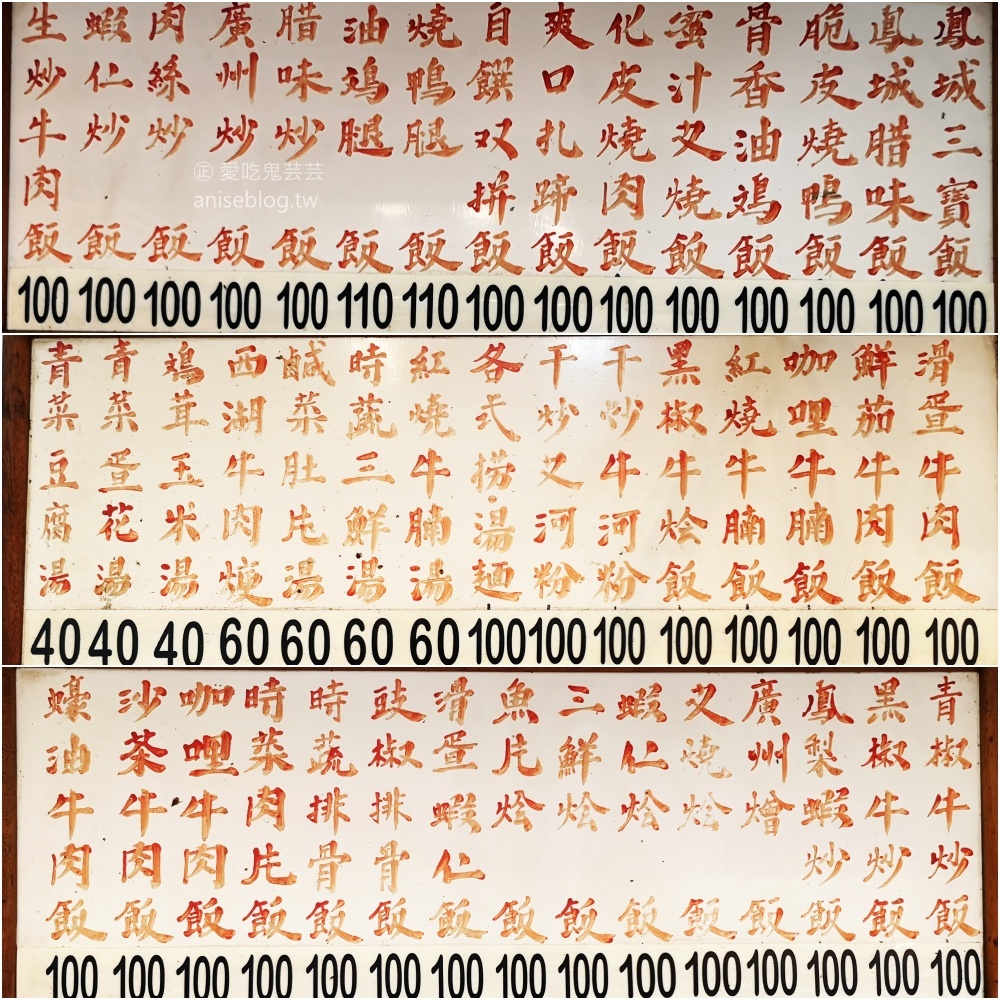 鳳城三寶飯 100
鳳城腊味飯 100
脆皮燒鴨飯 100
骨香油鸡飯 100
蜜汁叉燒飯 100
化皮燒肉飯 100
爽口扎蹄飯 100
自饌双拼飯 100
燒鴨腿飯 110
油鸡腿飯 110
腊味炒飯 100
廣州炒飯 100
肉絲炒飯 100
蝦仁炒飯 100
生炒牛肉飯 100
㊣ 愛吃鬼芸芸
aniseblog.tw
滑蛋牛肉飯 100
鮮茄牛肉飯 100
咖哩牛腩飯 100
紅燒牛腩飯 100
黑椒牛烩飯 100
干炒牛河粉 100
干炒叉河粉 100
各式捞·湯麺 100
紅燒牛腩湯 60
時蔬三鮮湯 60
鹹菜肚片湯 60
西湖牛肉焿 60
鸡茸玉米湯 40
青菜蛋花湯 40
青菜豆腐湯 40
青椒牛炒飯 100
黑椒牛炒飯 100
鳳梨蝦炒飯 100
廣州燴飯 100
叉燒烩飯 100
蝦仁烩飯 100
三鮮烩飯 100
魚片烩飯 100
滑蛋蝦仁飯 100
豉椒排骨飯 100
時蔬排骨飯 100
時菜肉片飯 100
咖哩牛肉飯 100
沙茶牛肉飯 100
蠔油牛肉飯 100